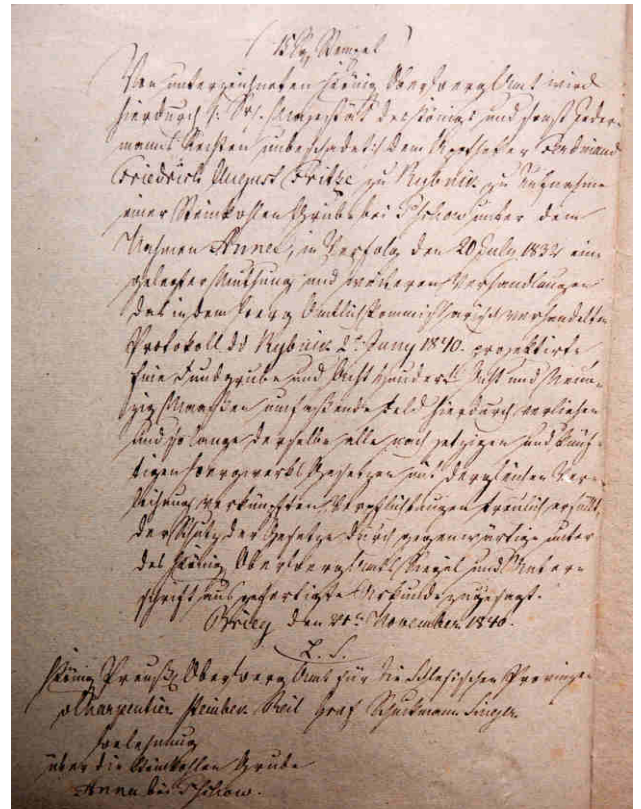 (15 Sg Stempel)
Von unterzeichneten Königl. Oberberg Amt wird
hierdurch Majestät des Königs und sonst Jeder-
manns Rechten unbeschadet dem Apotheker Ferdinand
Friedrich August Fritze zu Rybnik zu Aufnahme
einer Steinkohlen Grube bei Pschow unter dem
Nahmen Anna, in Verfolg den 20 July 1832 ein-
gelegter Muthung und weiteren Verhandlungen
das in dem berg Amtlich Kommissarisch verhandelten
Protokoll dd Rybnik 2t Juny 1840. projektirte
Eine Fundgrube und Acht Hundert Acht und Neun-
zig Maaßen umfaßende Feld hierdurch verliehen
und so lange derselbe alle nach jetzigen und künf-
tigen bergwerks Gesetzen mit dergleichen Ver-
leihung verknüpften Verpflichtungen treulich erfüllt,
der Schutz der Gesetze durch gegenwärtige unter
des Königl. Oberberg Amts Siegel und Unter-
schrift ausgefertigte Urkunde zugesagt.
Brieg den November 1840.
L. S.
Königl. Preuß. Oberberg Amt für die Schlesischen Provinzen
v Charpentier Steinbeck Reil Graf Schuckmann Singer
Belehnung
über die Steinkohlen Grube
Anna bei Pschow.